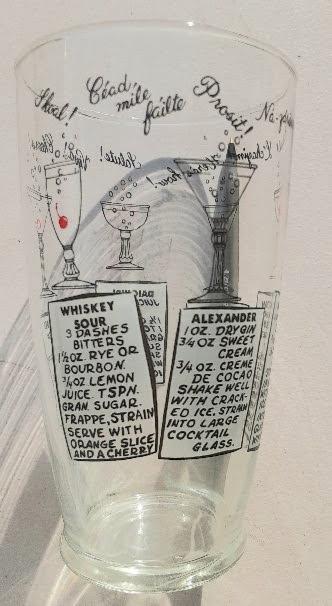 Skoal!
Céad
mile
failte
Prosit!
WHISKEY
SOUR
3 DASHES
BITTERS
1½ OZ. RYE OR
BOURBON.
¾ OZ LEMON
JUICE. TSPN.
GRAN. SUGAR.
FRAPPE, STRAIN
SERVE WITH
ORANGE SLICE
AND A CHERRY
ALEXANDER
1 OZ. DRY GIN
¾ OZ SWEET
CREAM
¾ OZ. CREME
DE COCAO
SHAKE WELL
WITH CRACK-
ED ICE, STRAIN
INTO LARGE
COCKTAIL
GLASS.
Salute!
Here's how!